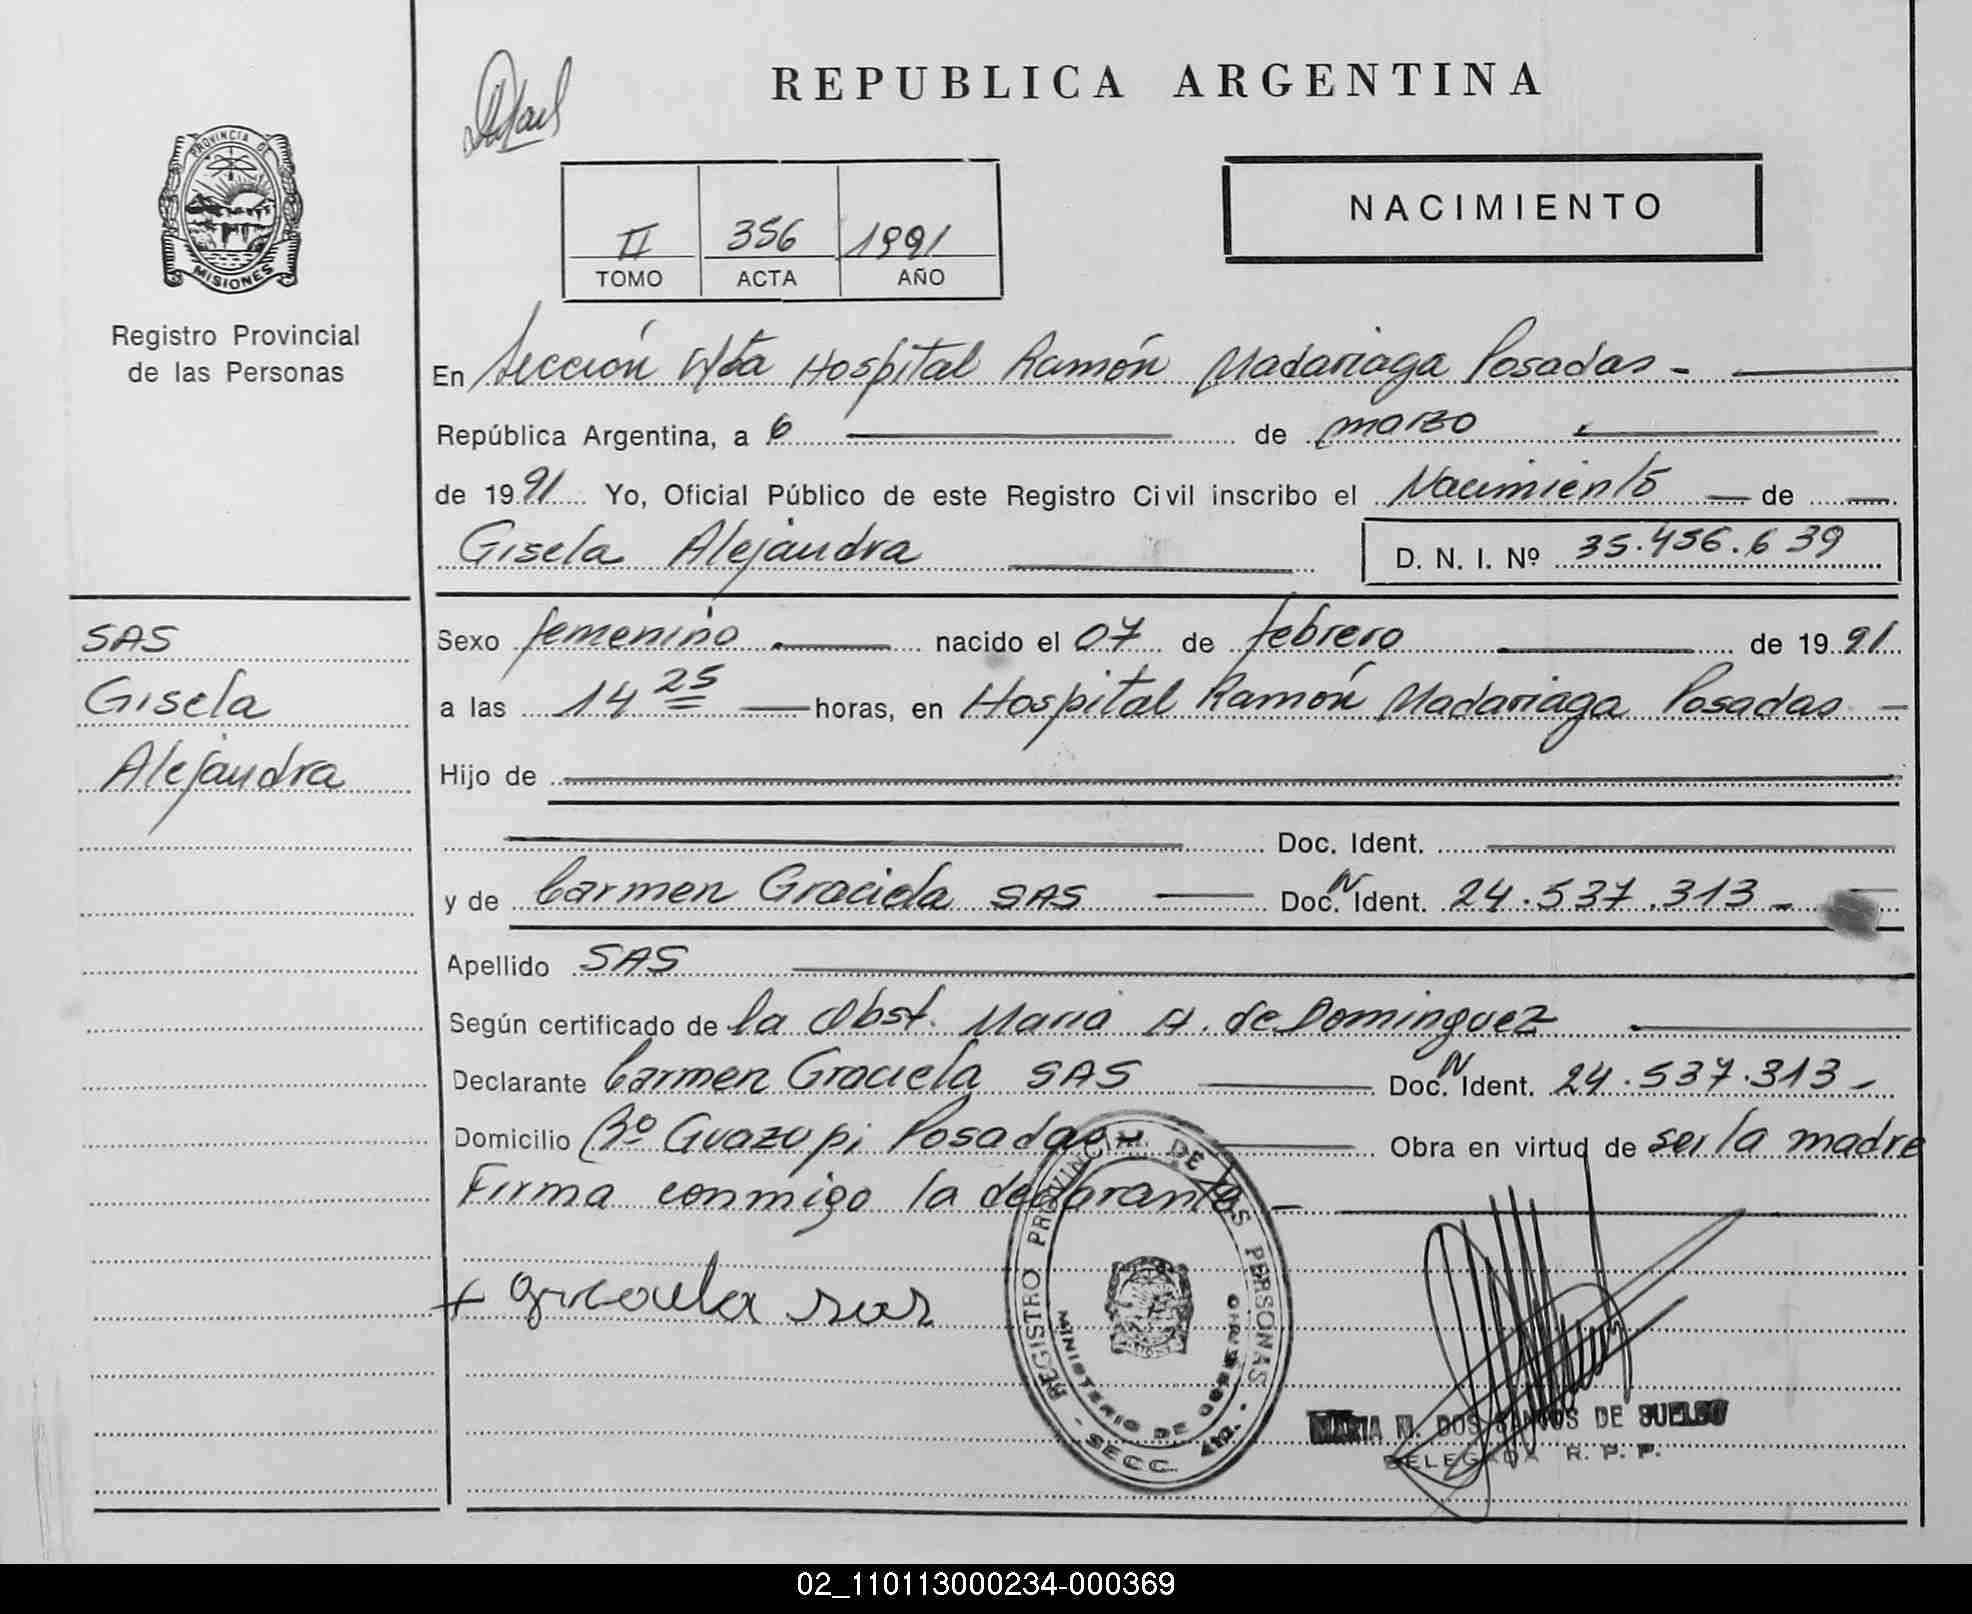 REPUBLICA ARGENTINA
PROVINCIA DE
MISIONES
Registro Provincial
de las Personas
II 356 1991
TOMO ACTA AÑO
NACIMIENTO
En Sección 4ta Hospital Ramón Madariaga Posadas -
República Argentina, a 6 de marzo
de 1991 Yo, Oficial Público de este Registro Civil inscribo el Nacimiento de
Gisela Alejandra D. N. I. Nº 35.456.639
SAS
Gisela
Alejandra
Sexo femenino nacido el 07 de febrero de 1991
a las 14 25 horas, en Hospital Ramón Madariaga Posadas -
Hijo de
Doc. Ident.
y de Carmen Graciela SAS Doc. N Ident. 24.537.313 -
Apellido SAS
Según certificado de la Obst. Maria A. de Dominguez
Declarante Carmen Graciela SAS Doc. N Ident. 24.537.313 -
Domicilio Bº Guazupi Posadas - Obra en virtud de ser la madre
Firma conmigo la declarante -
+ graciela sas
REGISTRO PROVINCIAL DE LAS PERSONAS
MINISTERIO DE GOBIERNO
- SECC. 4ta. -
MARIA M. DOS SANTOS DE SUELDO
DELEGADA R. P. P.
02_110113000234-000369